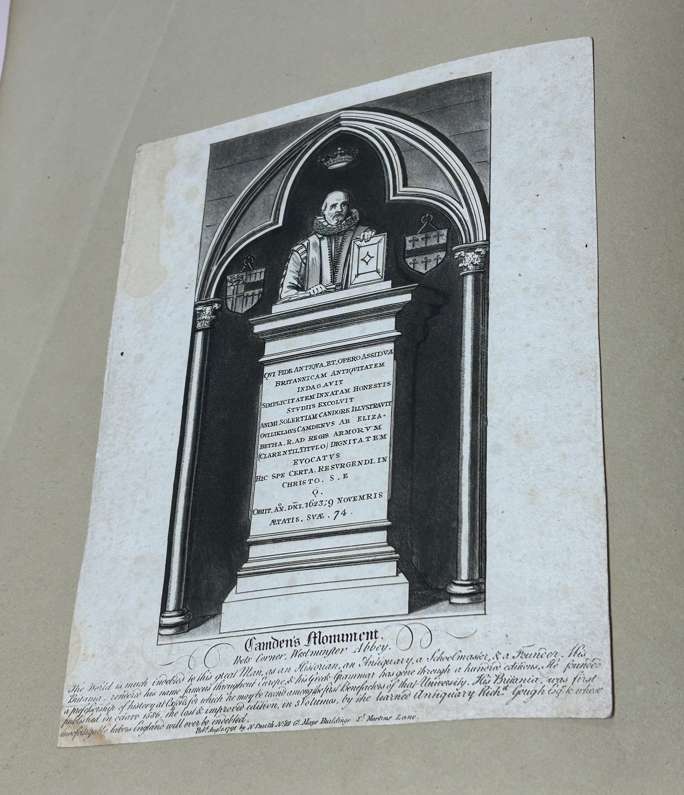 QUI FIDE ANTIQVA, ET, OPERO ASSIDVA
BRITANNICAM ANTIQVITATEM
INDAGAVIT
SIMPLICITATEM INNATAM HONESTIS
STVDIIS EXCOLVIT
ANIMI SOLERTIAM CANDORE ILLVSTRAVIT
CAMDENVS AB ELIZA-
BETHA . R. AD REGIS ARMORVM
(CLARENTII, TITVLO) DIGNITATEM
EVOCATVS
HIC SPE CERTA. RESURGENDI. IN
CHRISTO. S. E
Q.
OBIIT. AN. DNI. 1623, 9 NOVEMRIS
ÆTATIS. SVÆ. 74.
Camden's Monument.
Poets Corner, Westminster Abbey.
The World is much envobled by this great Man, as an Historian, an Antiquary, a Schoolmaster, & a Founder. His
renders his name famous throughout Europe, & his Greek Grammar has gone through a hundred editions. He founded
a professorship of history at Oxford for which he may be rank'd among the first Benefactors of that University. His Britania, was first
published in octavo 1586, the last & improved edition, in 3 Volumes, by the learned Antiquary Richd. Gough Esqr. to whose
labors england will ever be indebted.
Pubd. 1791 by N Smith No 18 Gt. Mays Buildings St. Martins Lane.